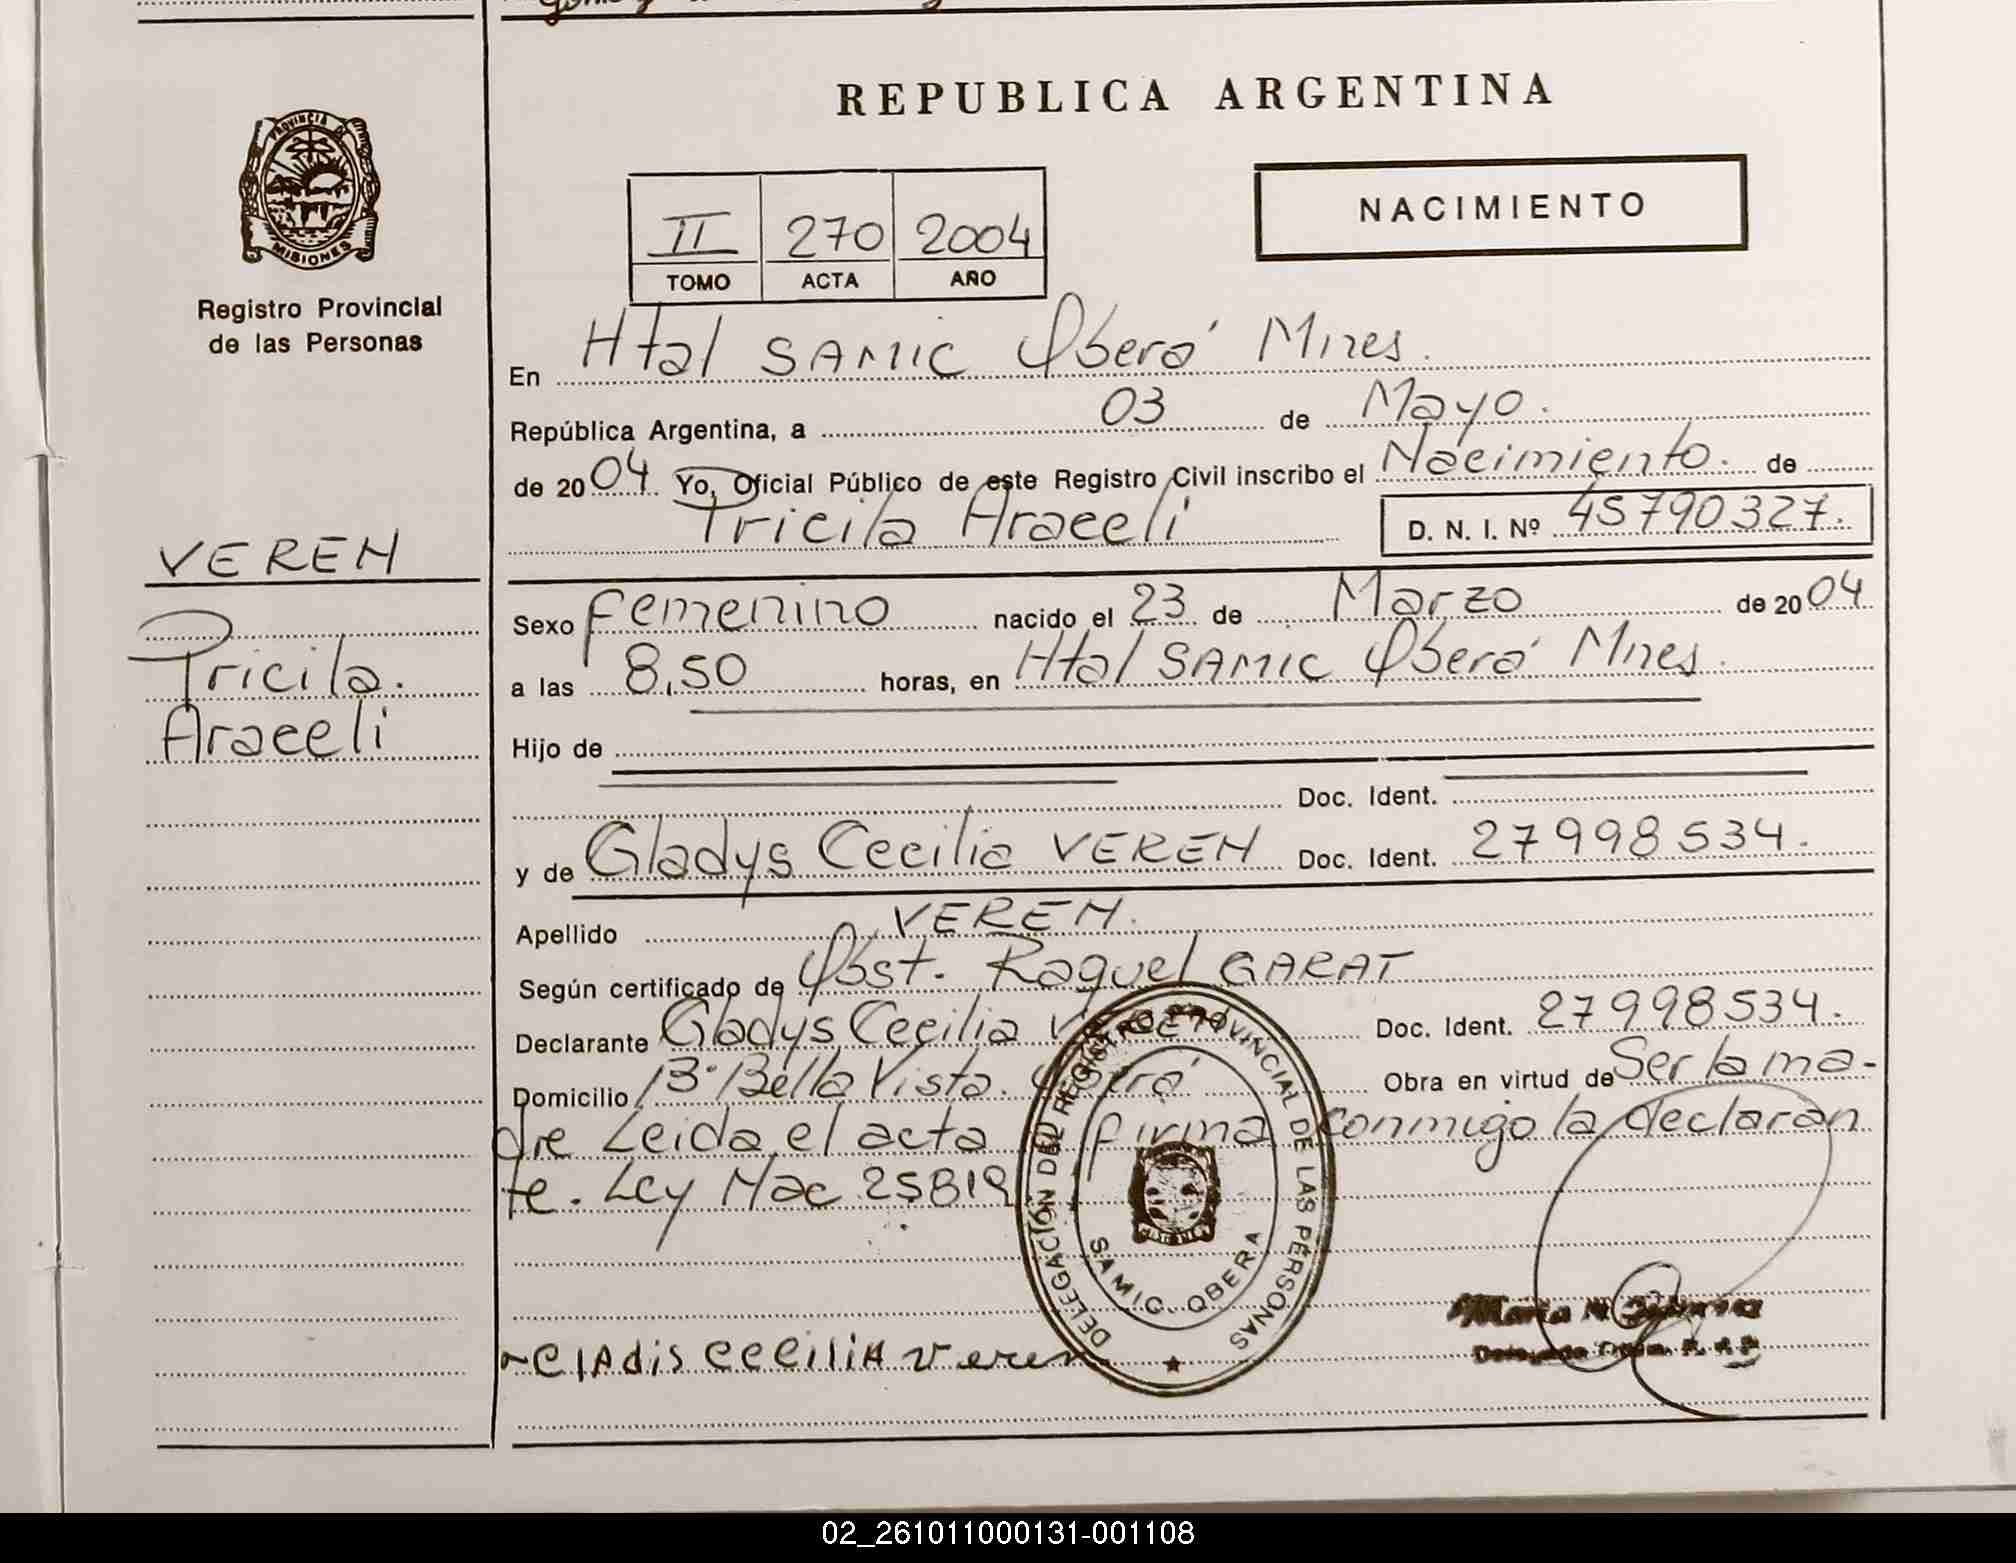 REPUBLICA ARGENTINA
PROVINCIA DE
MISIONES
Registro Provincial
de las Personas
II 270 2004
TOMO ACTA AÑO
NACIMIENTO
En Htal SAMIC Oberá Mnes.
República Argentina, a 03 de Mayo.
de 2004 Yo, Oficial Público de este Registro Civil inscribo el Nacimiento. de
Pricila Araceli D. N. I. Nº 45790327.
VEREN
Pricila.
Araceli
Sexo Femenino nacido el 23 de Marzo de 2004
a las 8,50 horas, en Htal SAMIC Oberá Mnes.
Hijo de
Doc. Ident.
y de Gladys Cecilia VEREN Doc. Ident. 27998534.
Apellido VEREN.
Según certificado de Obst. Raquel GARAT
Declarante Gladys Cecilia VEREN Doc. Ident. 27998534.
Domicilio Bº Bella Vista. Oberá Obra en virtud de Ser la ma-
dre Leida el acta firma conmigo la declaran
te. Ley Nac 25819
DELEGACIÓN DEL REGISTRO PROVINCIAL DE LAS PERSONAS
SAMIC. OBERA
MISIONES
Maria
clAdis cecilia veren
02_261011000131-001108